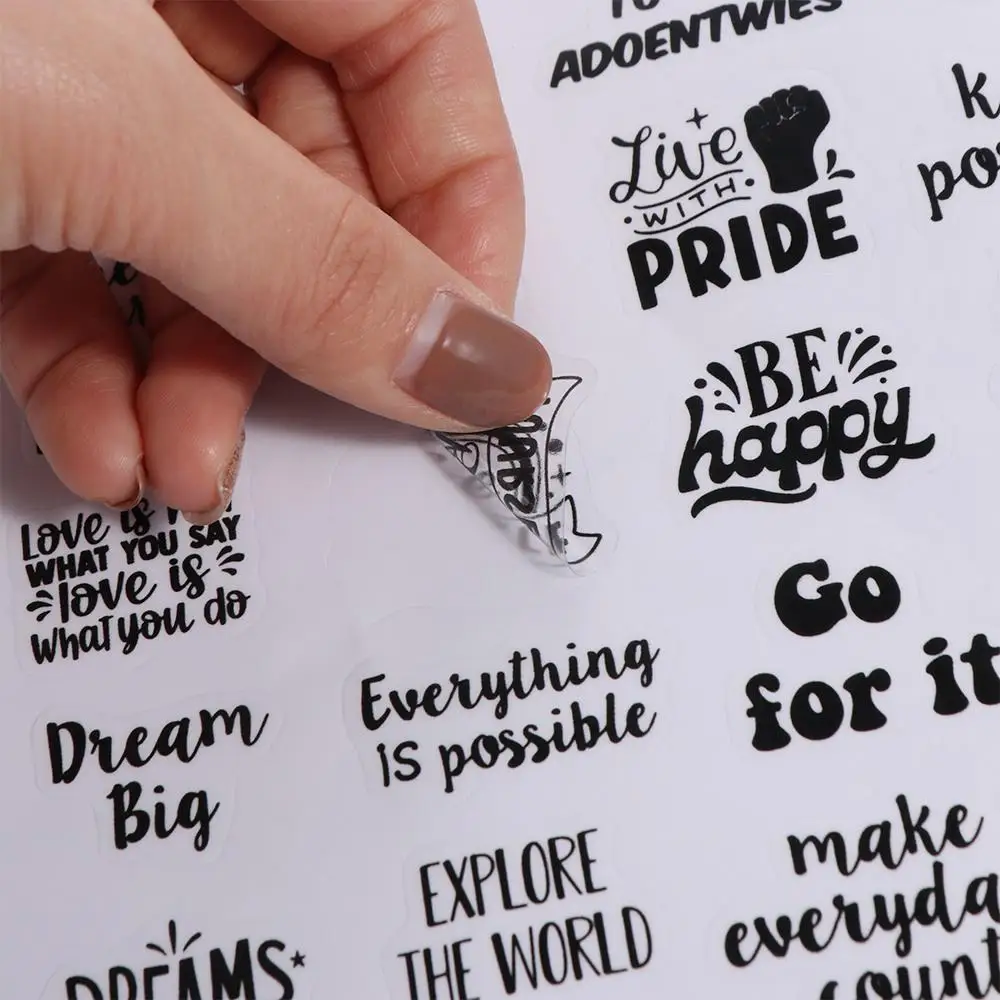 TO
ADOENTWIES
Live
WITH
PRIDE
BE
happy
LOVE IS
WHAT YOU SAY
love is
what you do
Everything
is possible
Go
for it
Dream
Big
EXPLORE
THE WORLD
make
DREAMS